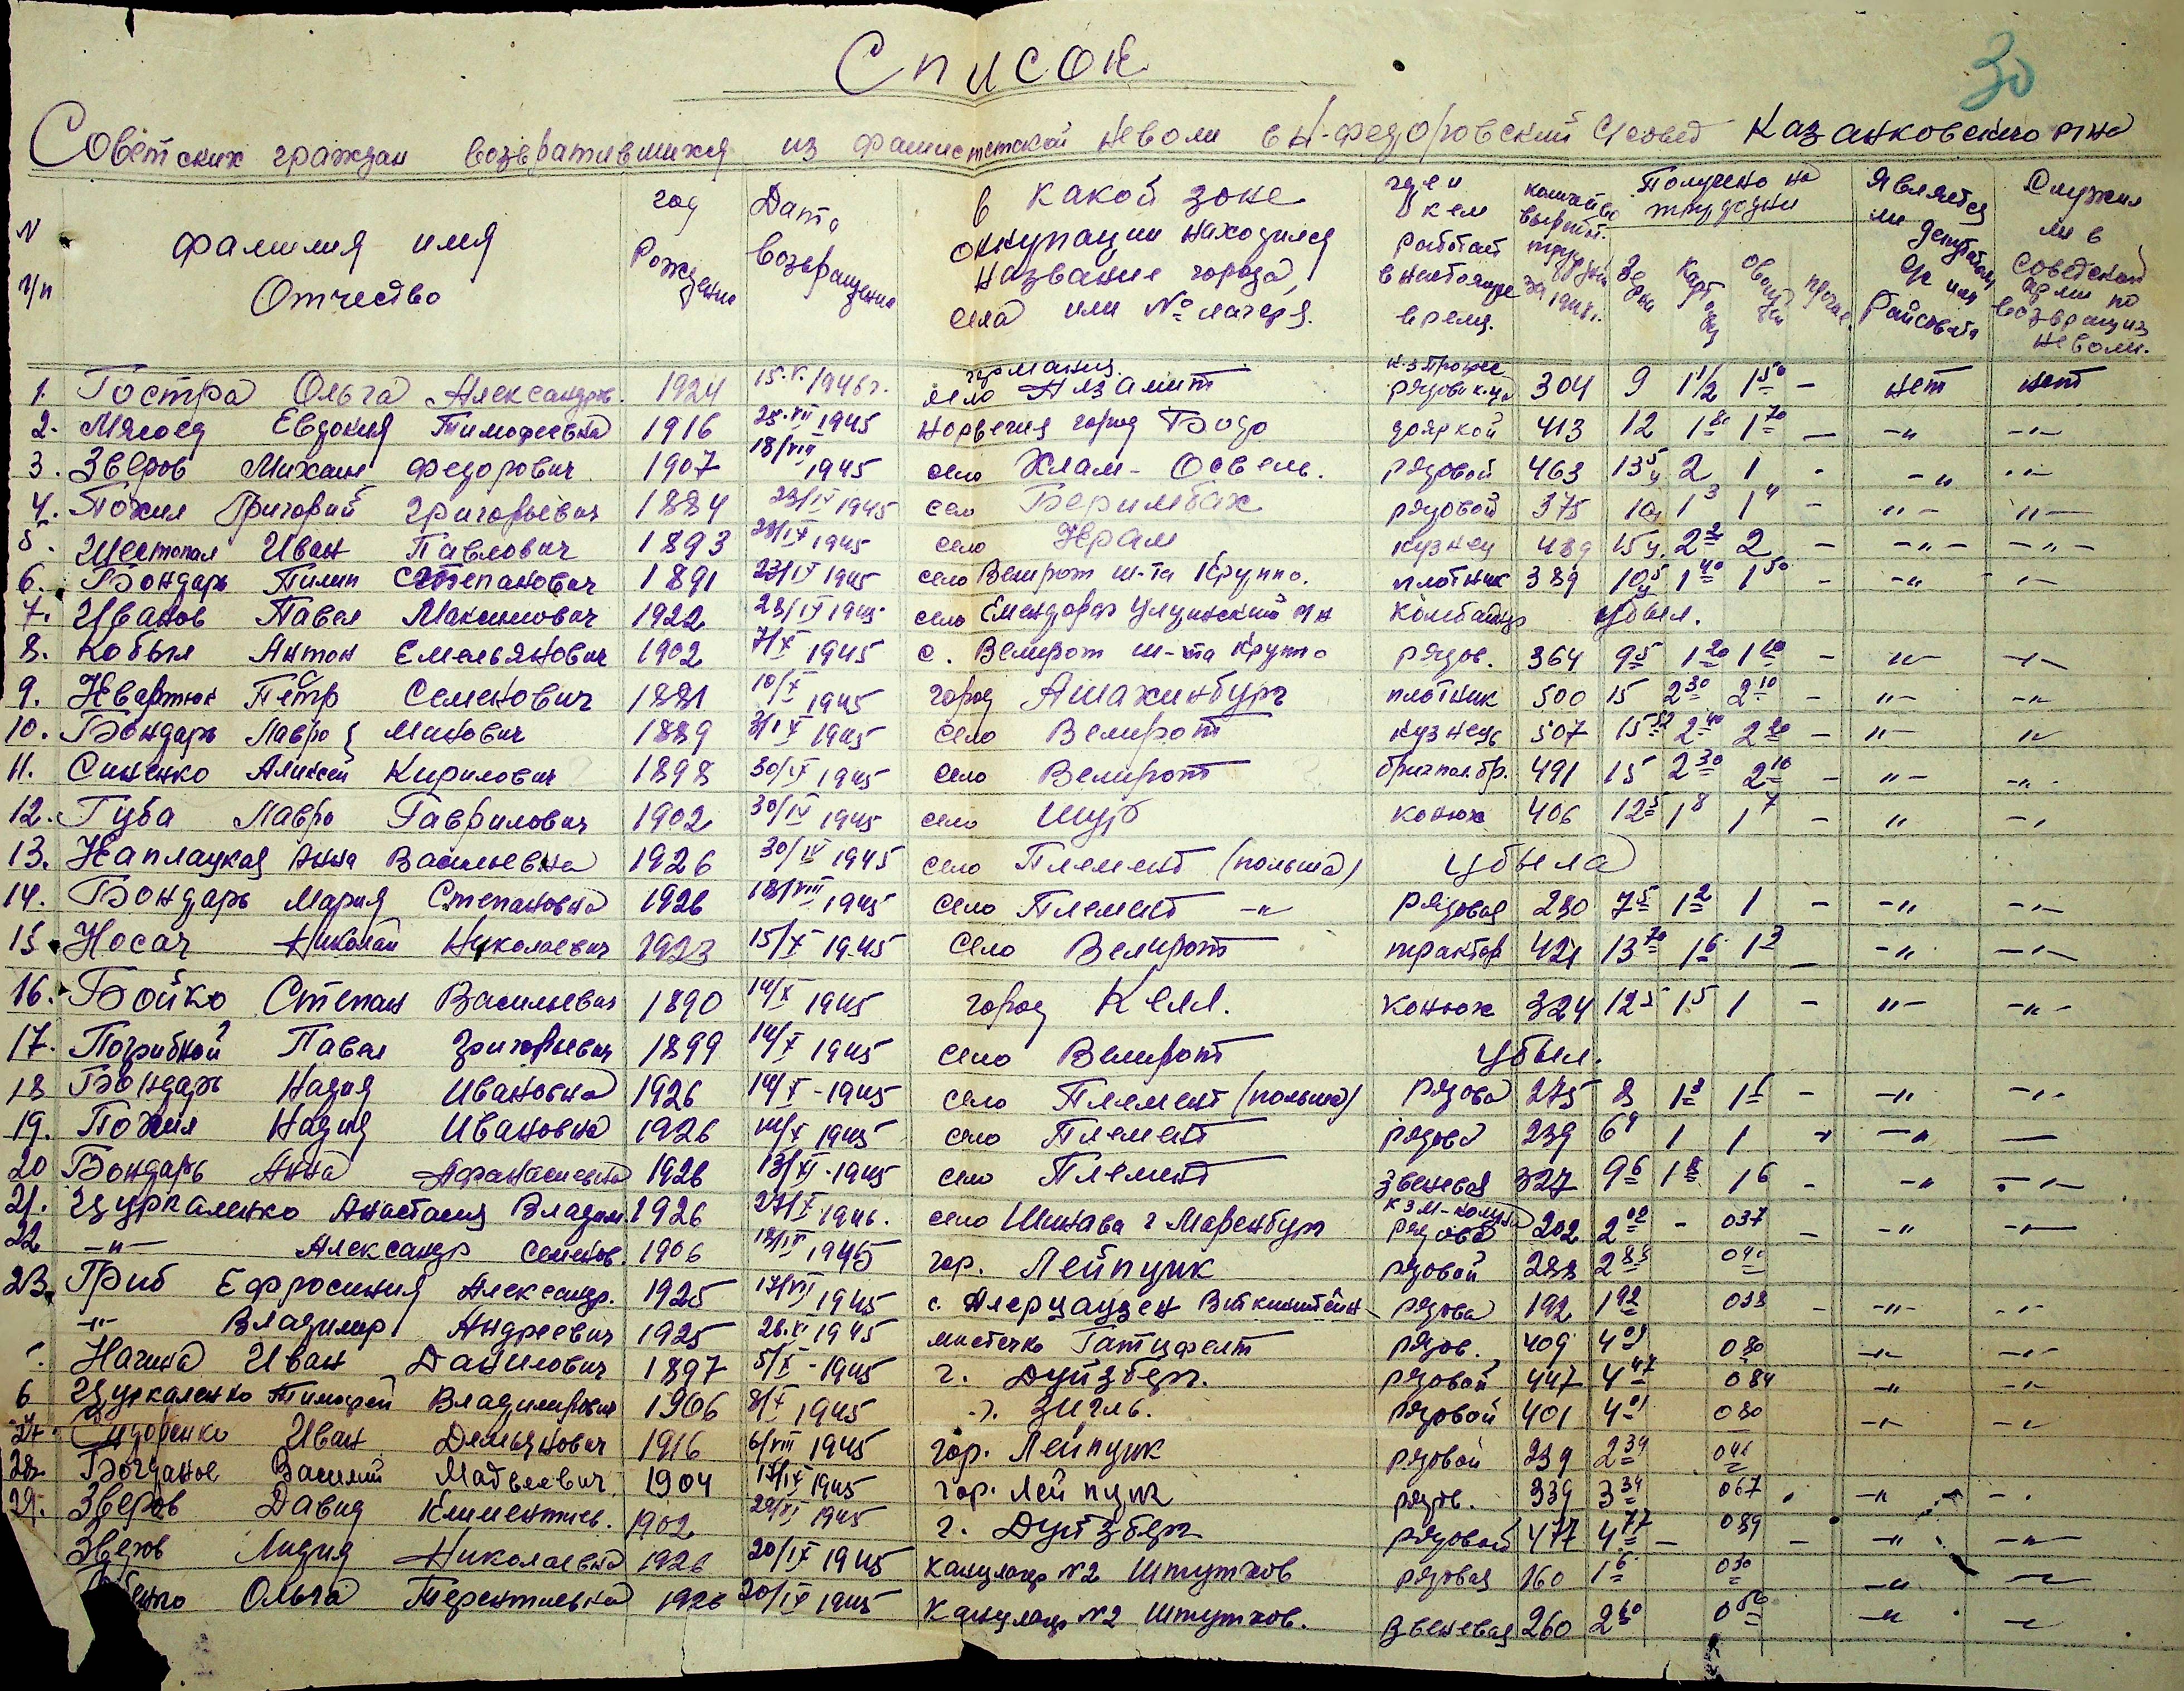 30
Список
Советских граждан возвратившихся из фашистской неволи в Н-Федоровский с/совет Казанковского р-на
N п/п фамилия имя Отчество год Рождения Дата возвращения в какой зоне оккупации находился название города, села или № лагеря. где и кем работает в настоящее время. Получено на трудодни Является ли депутатом с/с или Райсовета Служил ли в советской армии по возвращ из неволи.
1. Гостра Ольга Александров. 1924 15.V.1946г. германия село Алзамит рядовик-ца 304 9 1 1/2 1 50 - нет нет
2. Мягоед Евдокия Тимофеевна 1916 25.VII 1945 Норвегия город Бодо дояркой 413 12 1 80 1 70 - -"- -"-
3. Зверов Михаил Федорович 1907 18/VIII 1945 село Хлам-Освель. рядовой 463 13 5 2 1 - -"- -"-
4. Похил Григорий Григорьевич 1884 23/IX 1945 село Беримбах рядовой 375 1 3 1 4 - -"- -"-
5. Шестопал Иван Павлович 1893 1945 село Храм кузнец 489 2 2 - -"- -"-
6. Бондарь Пилип Степанович 1891 23/IX 1945 село Велирот ш-та Круппо. плотник 389 10 5 1 40 1 50 - -"- -"-
7. Иванов Павел Максимович 1922 23/IX 1945 село Елендорф р-н комбайнер убыл.
8. Кобыл Антон Емельянович 1902 7/X 1945 с. Велирот ш-та Круппо рядов. 364 9 5 1 20 1 - -"- -"-
9. Квартюк Пётр Семенович 1881 10/X 1945 город Ашахинбург плотник 500 15 2 30 2 10 - -"- -"-
10. Бондарь Лавро Манович 1889 1945 село Велирот кузнець 507 15 52 2 40 2 20 - -"- -"-
11. Синенко Алексей Кирилович 1898 30/IX 1945 село Велирот бриг пол.бр. 491 15 2 30 2 10 - -"- -"-
12. Губа Лавро Гаврилович 1902 30/IX 1945 село Шур конюх 406 12 5 1 8 1 7 - -"- -"-
13. Каплацкая Анна Васильевна 1926 30/IX 1945 село Племент (польша) убыла
14. Бондарь Мария Степановна 1926 18/VIII 1945 село Племент -"- рядовая 230 7 5 1 2 1 - -"- -"-
15 Носач Николай Николаевич 1923 15/X 1945 село Велирот трактор 421 13 70 1 6 1 3 - -"- -"-
16. Бойко Степан Васильевич 1890 14/X 1945 город Келл. конюх 324 12 5 1 5 1 - -"- -"-
17. Погрибной Павел Григорьевич 1899 14/X 1945 село Велирот убыл.
18 Бондарь Надия Ивановна 1926 14/X-1945 село Племент (польша) рядова 275 8 1 3 1 - -"- -"-
19. Похил Надия Ивановна 1926 14/X 1945 село Племент рядова 239 6 9 1 1 - -"- -
20 Бондарь Анна Афанасиевна 1926 13/XI-1945 село Племент звеневая 327 9 6 1 8 1 6 - -"- -"-
21. Цуркаленко Анастасия Владим. 1926 27/X 1946. село Шинава г Маренбург рядова 202 2 02 - 0 37 - -"- -"-
22 -"- Александр Семенов. 1906 1945 гор. Лейпциг рядовой 288 2 88
23. Гриб Ефросиния Александр. 1925 17/VII 1945 с. Алерцаузен Виткинштейн рядова 192 1 92 0 38 - -"- -"-
-"- Владимир Андреевич 1925 28.XI 1945 мистечко Гатцфелт рядов. 409 4 09 0 80 -"- -"-
Нагина Иван Данилович 1897 5/X-1945 г. Дуйзберг. рядовой 447 4 47 0 84 -"- -"-
6 Цуркаленко Тимофей Владимирович 1906 8/X 1945 г. Зигль. рядовой 401 4 01 0 80 -"- -"-
27. Сидоренко Иван Демьянович 1916 6/VIII 1945 гор. Лейпциг рядовой 239 2 39
28 Богданов Василий Мадвеевич. 1904 17/IX 1945 гор. Лейпциг рядов. 339 3 39 0 67 -"- -
29. Зверов Давид Климентиев. 1902 1945 г. Дуйзберг рядовой 477 4 77 - 0 89 - -"- -"-
Зверов Лидия Николаевна 1926 20/IX 1945 Канцлагер №2 Штутхов рядовая 160 1 6 0 30 -"- -"-
Ольга Терентиевна 1926 20/IX 1945 Канцлагер №2 Штутхов. звеневая 260 2 60 -"- -"-